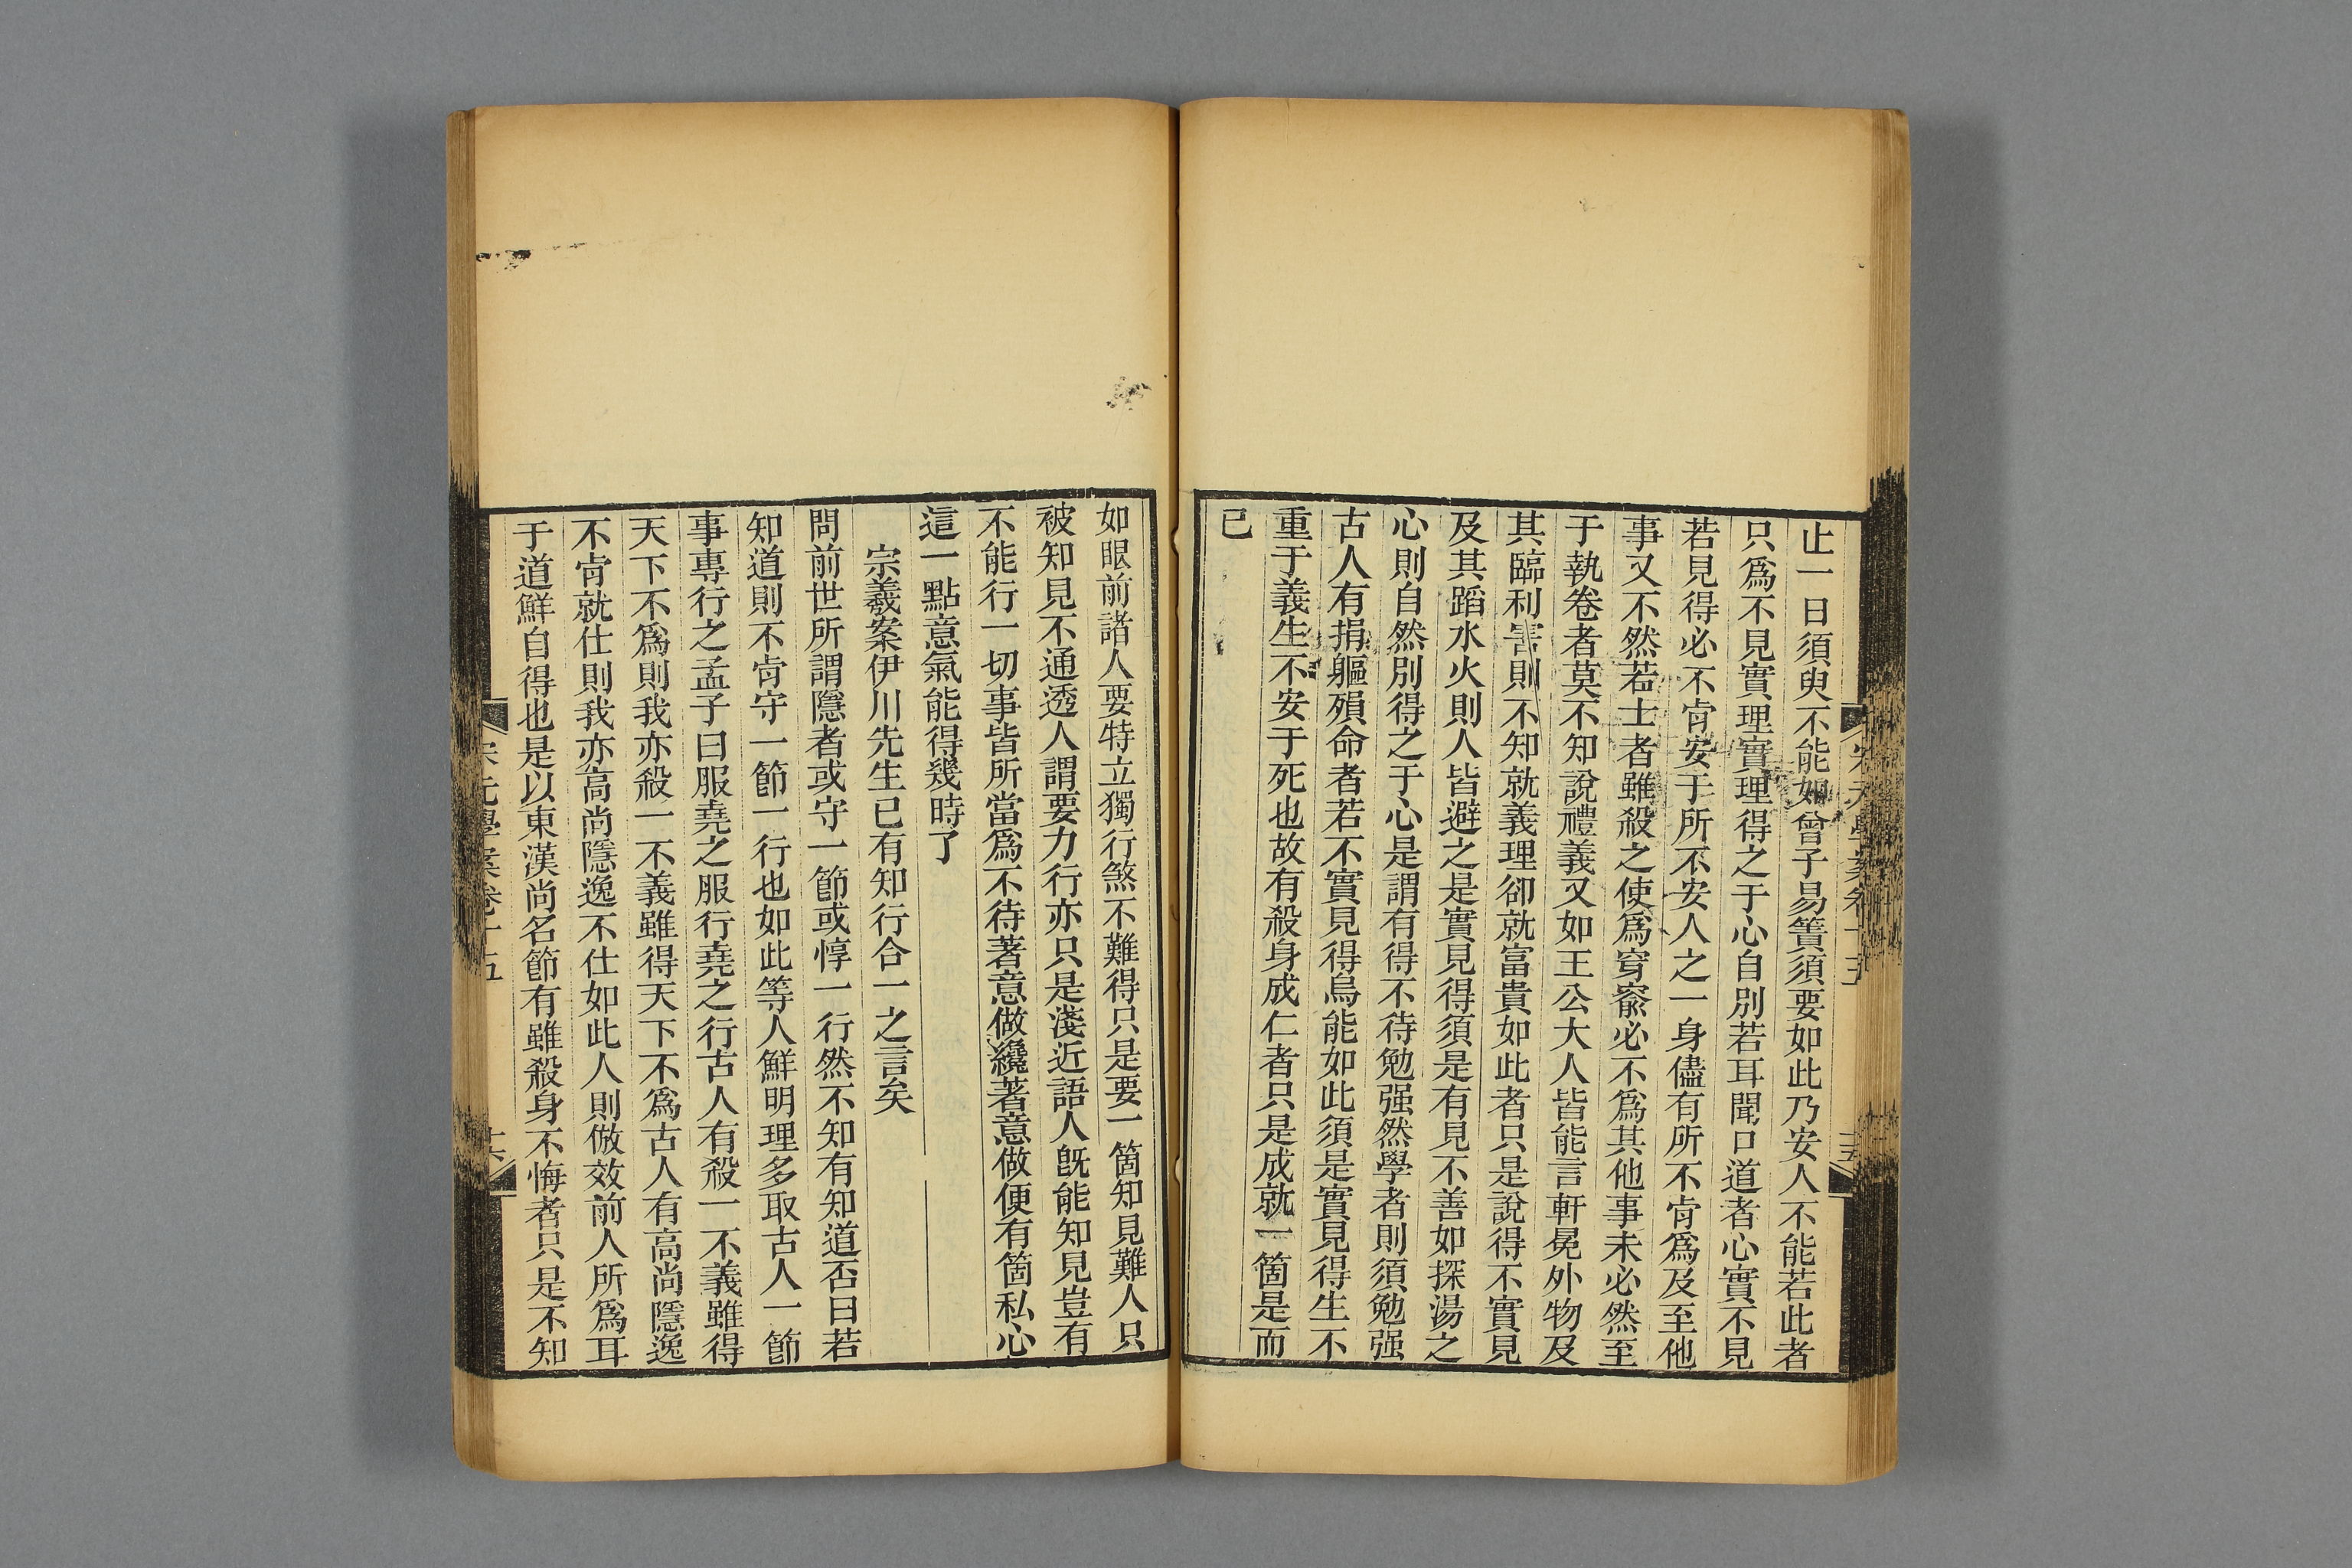 止一日須臾不能如曾子易簀須要如此乃安人不能若此者
只爲不見實理實理得之于心自別若耳聞口道者心實不見
若見得必不肯安于所不安人之一身儘有所不肯爲及至他
事又不然若士者雖殺之使爲穿窬必不爲其他事未必然至
于執卷者莫不知說禮義又如王公大人皆能言軒冕外物及
其臨利害則不知就義理卻就富貴如此者只是說得不實見
及其蹈水火則人皆避之是實見得須是有見不善如探湯之
心則自然別得之于心是謂有得不待勉强然學者則須勉强
古人有捐軀殞命者若不實見得烏能如此須是實見得生不
重于義生不安于死也故有殺身成仁者只是成就一箇是而
已
如眼前諸人要特立獨行煞不難得只是要一箇知見難人只
被知見不通透人謂要力行亦只是淺近語人旣能知見豈有
不能行一切事皆所當爲不待著意做纔著意做便有箇私心
這一點意氣能得幾時了
宗羲案伊川先生已有知行合一之言矣
問前世所謂隱者或守一節或惇一行然不知有知道否曰若
知道則不肯守一節一行也如此等人鮮明理多取古人一節
事專行之孟子曰服堯之服行堯之行古人有殺一不義雖得
天下不爲則我亦殺一不義雖得天下不爲古人有高尚隱逸
不肯就仕則我亦高尚隱逸不仕如此人則倣效前人所爲耳
于道鮮自得也是以東漢尚名節有雖殺身不悔者只是不知
宋元學案卷十五